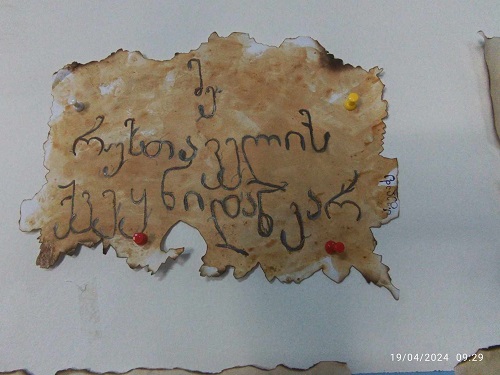 მე
რუსთაველის
ქვეყნიდან ვარ
19/04/2024 09:29